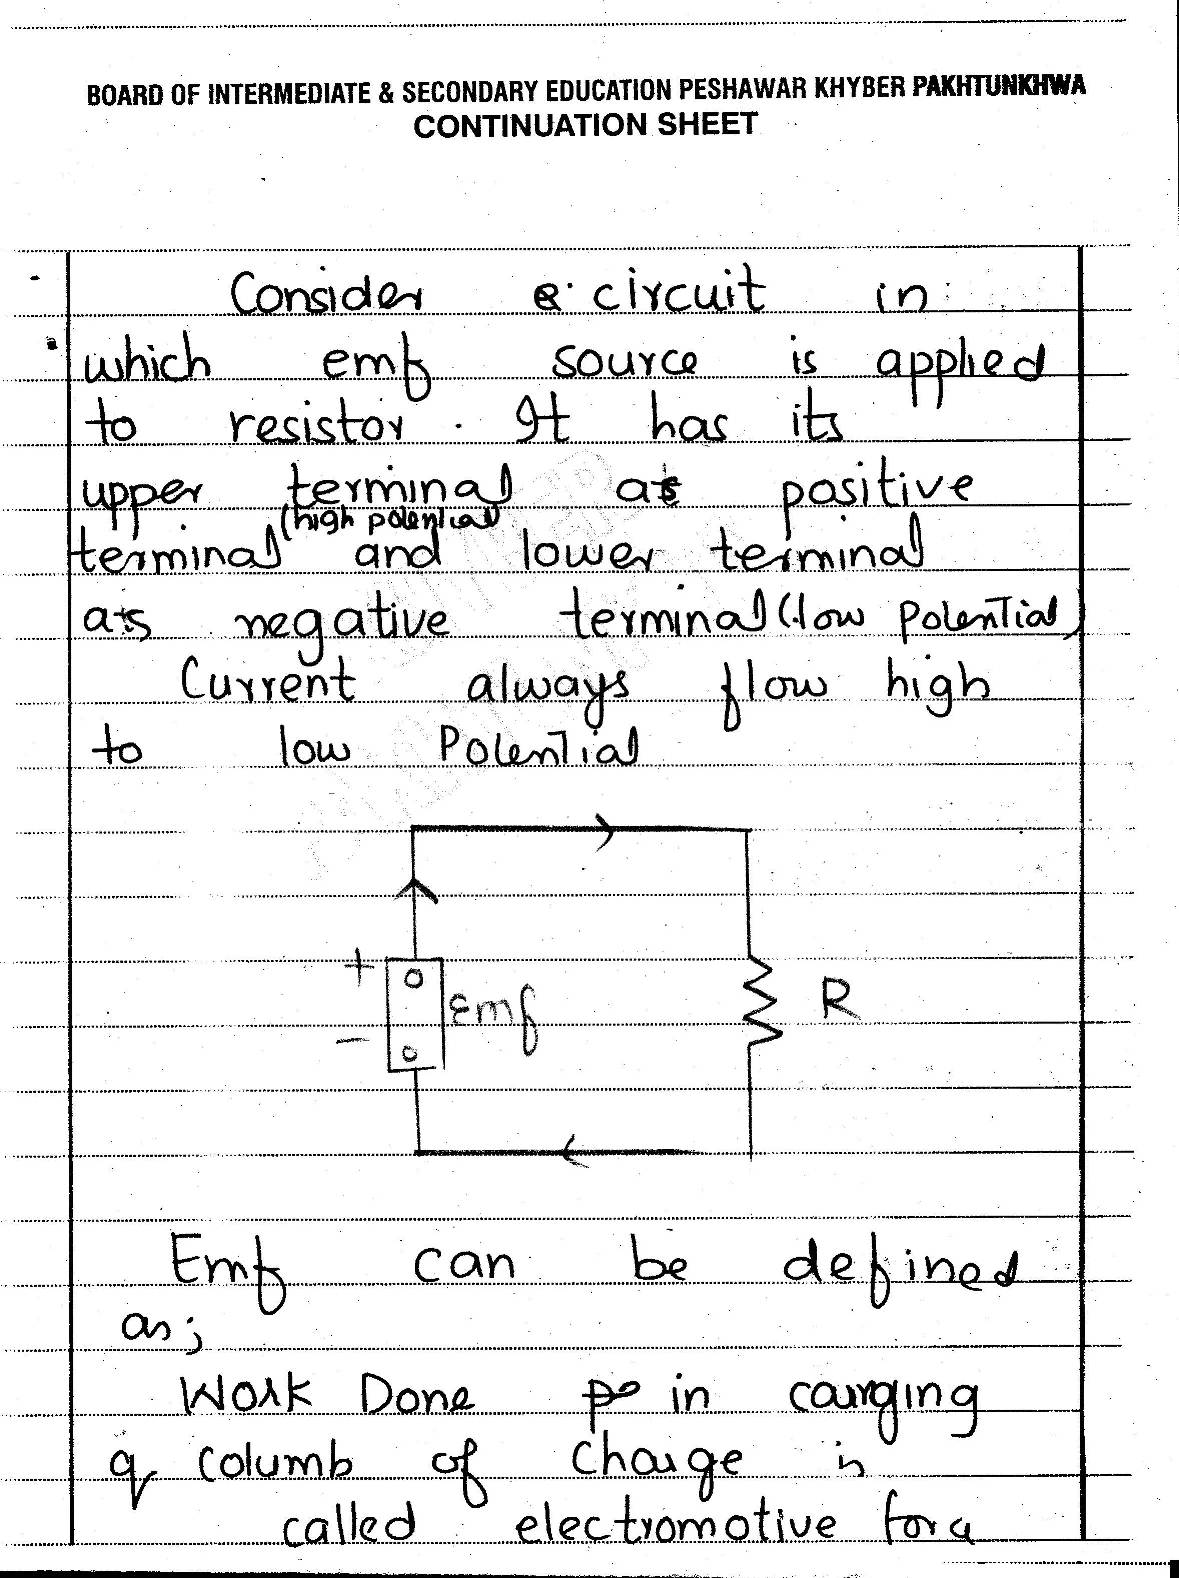 BOARD OF INTERMEDIATE & SECONDARY EDUCATION PESHAWAR KHYBER PAKHTUNKHWA
CONTINUATION SHEET
Consider a circuit in
which emf source is applied
to resistor. It has its
upper terminal as positive
(high potential)
terminal and lower terminal
as negative terminal (low Potential)
Current always flow high
to low Potential
+
Emf
R
-
Emf can be defined
as;
Work Done in carrging
q columb of charge is
called electromotive force